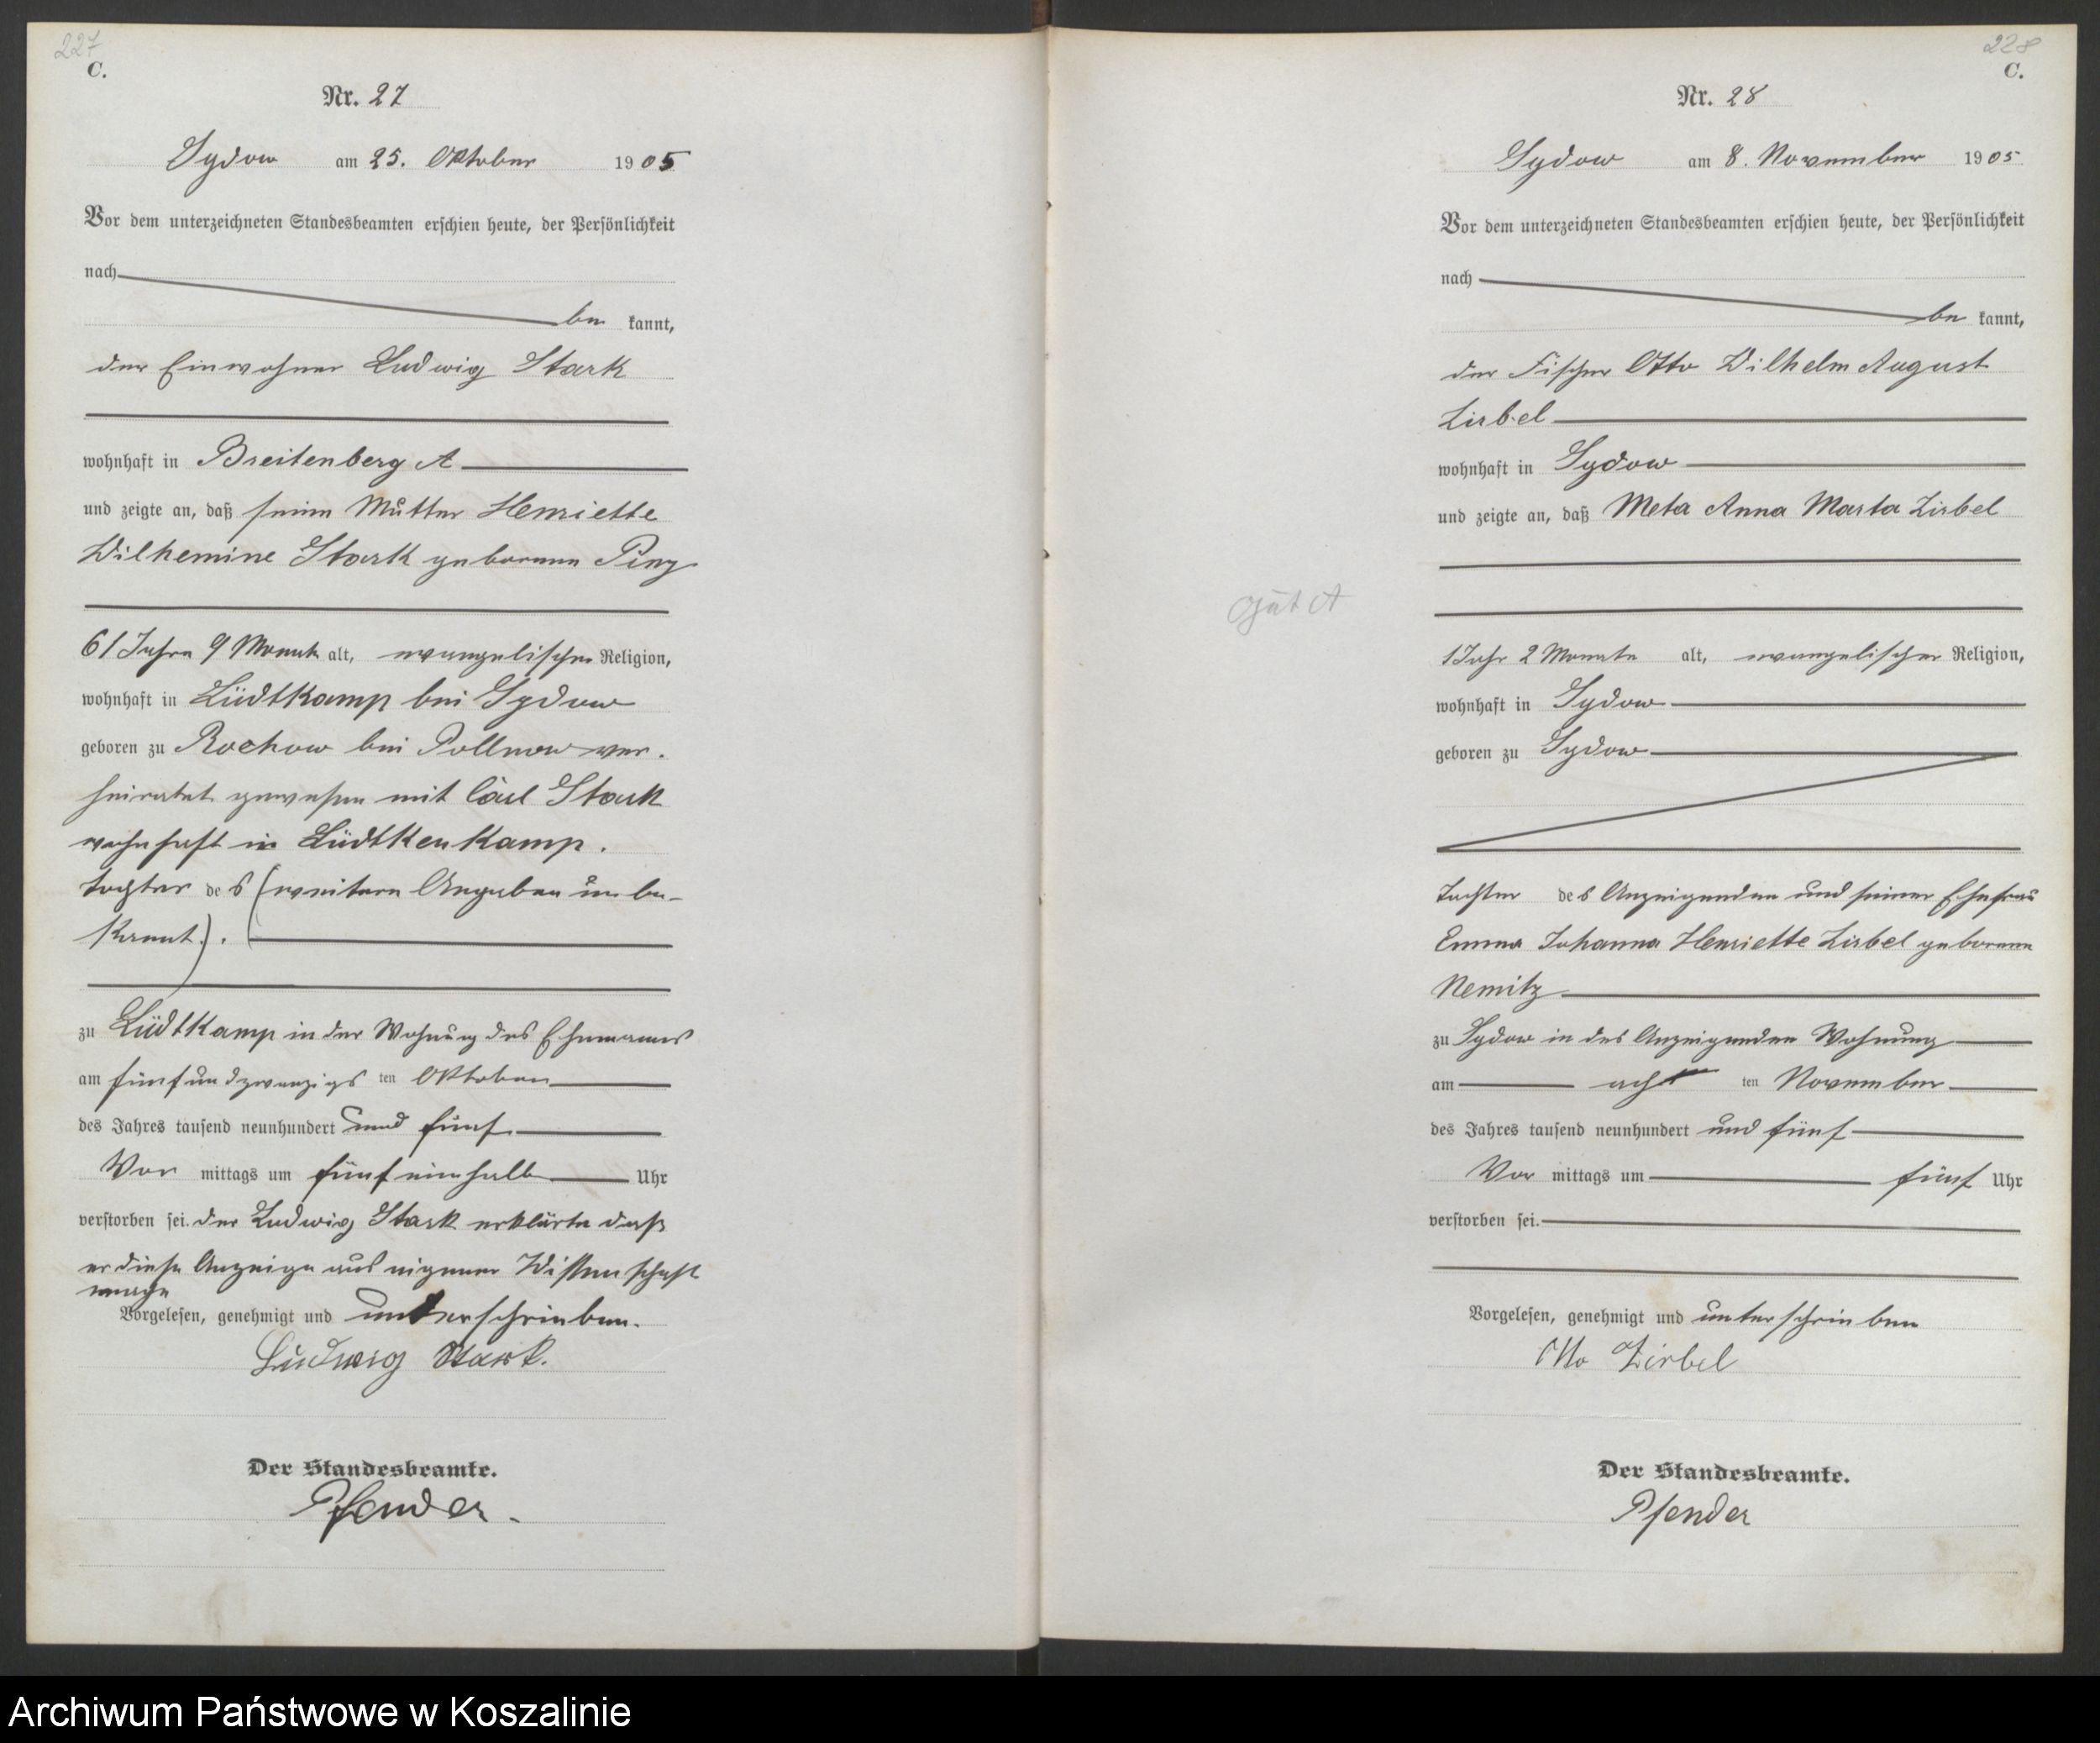 227
C.
Nr. 27
Sydow am 25. Oktober 1905
Vor dem unterzeichneten Standesbeamten erschien heute, der Persönlichkeit
nach
be kannt,
der Einwohner Ludwig Stark
wohnhaft in Breitenberg A
und zeigte an, daß seine Mutter Henriette
Wilhemine Stark geborene Piey
61 Jahre 9 Monate alt, evangelischer Religion,
wohnhaft in Lüdtkamp bei Sydow
geboren zu Rochow bei Pollnow ver.
heiratet gewesen mit Carl Stark
wohnhaft in Lüdtkenkamp.
Tochter des (weitere Angaben unbe-
kannt).
zu Lüdtkamp in der Wohnung des Ehemannes
am fünfundzwanzigsten Oktober
des Jahres tausend neunhundert und fünf
Vor mittags um fünfeinhalb Uhr
verstorben sei. der Ludwig Stark erklärte daß
er diese Anzeige aus eigener Wissenschaft
mache
Vorgelesen, genehmigt und unterschrieben.
Ludwig Stark.
Der Standesbeamte.
Pfender.
228
C.
Nr. 28
Sydow am 8. November 1905
Vor dem unterzeichneten Standesbeamten erschien heute, der Persönlichkeit
nach
be kannt,
der Fischer Otto Wilhelm August
Zirbel
wohnhaft in Sydow
und zeigte an, daß Meta Anna Marta Zirbel
Gut A
1 Jahr 2 Monate alt, evangelischer Religion,
wohnhaft in Sydow
geboren zu Sydow
Tochter des Anzeigenden und seiner Ehefrau
Emma Johanna Henriette Zirbel geborene
Nemitz
zu Sydow in des Anzeigenden Wohnung
am achtten November
des Jahres tausend neunhundert und fünf
Vor mittags um fünf Uhr
verstorben sei.
Vorgelesen, genehmigt und unterschrieben
Otto Zirbel
Der Standesbeamte.
Pfender
Archiwum Państwowe w Koszalinie